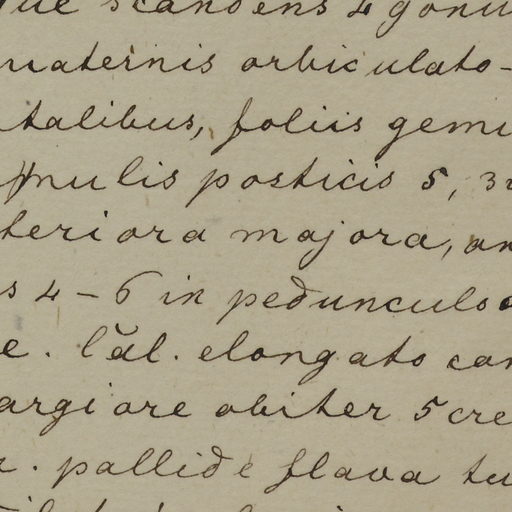 ue scandens 4 gonu
uaternis orbiculato-
talibus, foliis gemi
mulis posticis 5, 3
teriora majora, an
s 4-6 in pedunculo
e. lăl. elongato con
argiore obiter 5 cre
. pallide flava tu